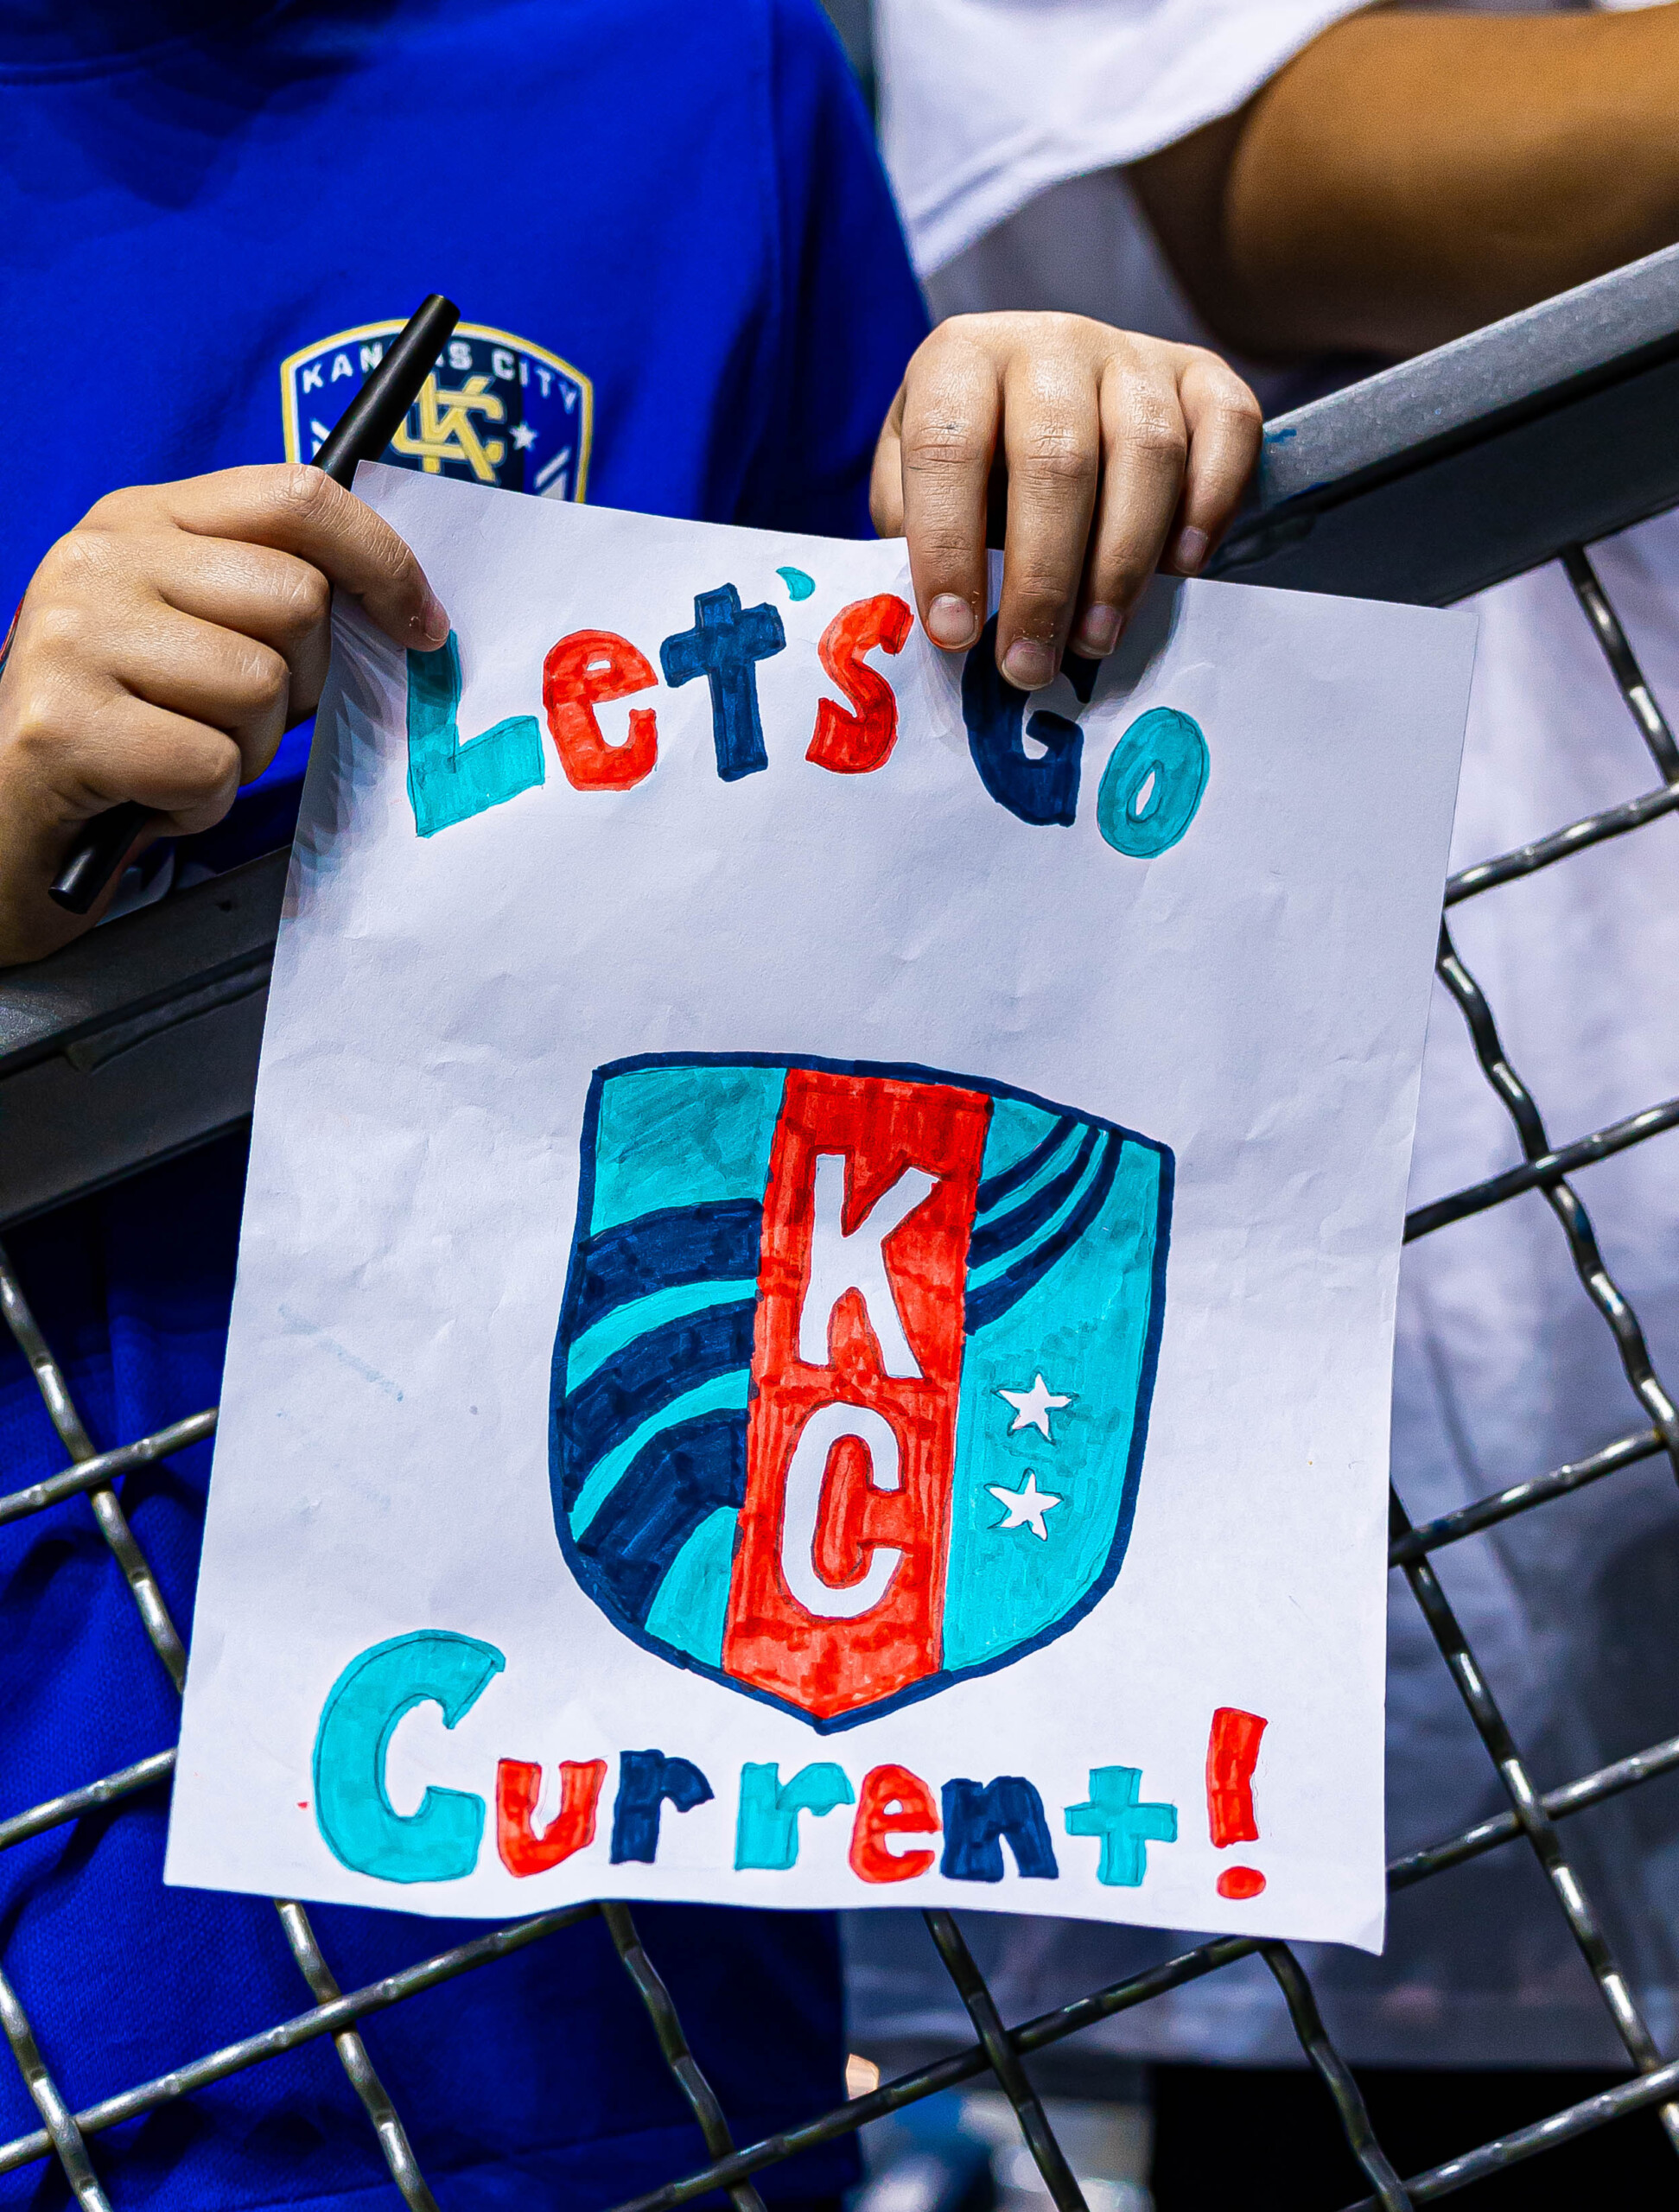 KANSAS CITY
KC
Let's Go
K
C
Current!